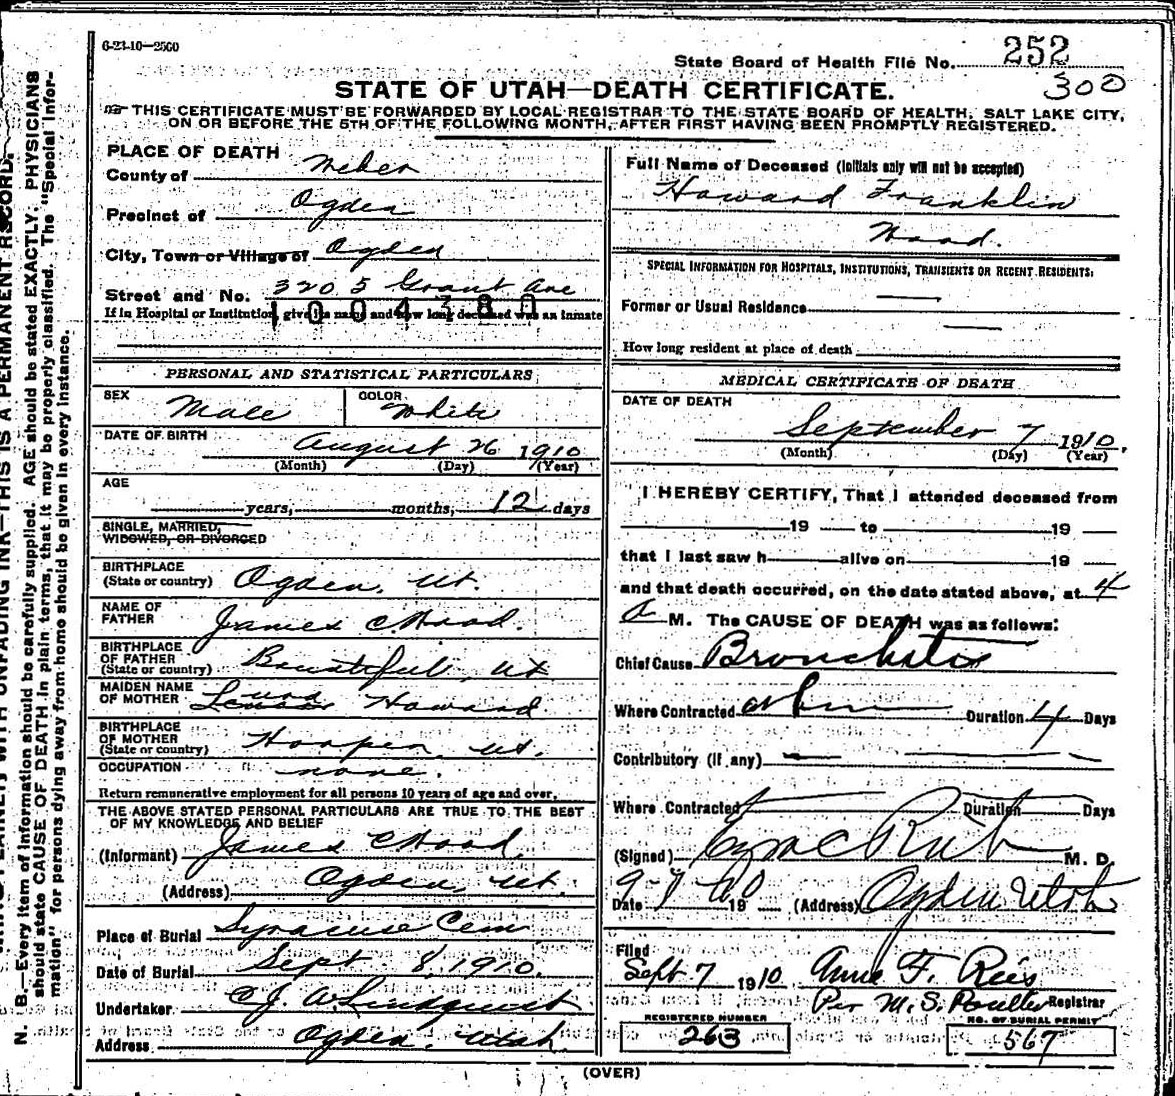 6-23-10—2500
State Board of Health File No. 252
300
STATE OF UTAH—DEATH CERTIFICATE.
THIS CERTIFICATE MUST BE FORWARDED BY LOCAL REGISTRAR TO THE STATE BOARD OF HEALTH, SALT LAKE CITY,
ON OR BEFORE THE 5TH OF THE FOLLOWING MONTH, AFTER FIRST HAVING BEEN PROMPTLY REGISTERED.
PLACE OF DEATH
County of Weber
Precinct of Ogden
City, Town or Village of Ogden
Street and No. 3205 Grant Ave
If in Hospital or Institution, give its name and how long deceased was an inmate
1004380
PERSONAL AND STATISTICAL PARTICULARS
SEX Male COLOR White
DATE OF BIRTH August 26 1910
(Month) (Day) (Year)
AGE
years, months, 12 days
SINGLE, MARRIED,
WIDOWED, OR DIVORCED
BIRTHPLACE
(State or country) Ogden, Ut.
NAME OF
FATHER James C. Hood.
BIRTHPLACE
OF FATHER
(State or country) Bountiful, Ut
MAIDEN NAME
OF MOTHER Howard
BIRTHPLACE
OF MOTHER
(State or country) Hooper, Ut.
OCCUPATION none.
Return remunerative employment for all persons 10 years of age and over.
THE ABOVE STATED PERSONAL PARTICULARS ARE TRUE TO THE BEST
OF MY KNOWLEDGE AND BELIEF
(Informant) James C Hood.
(Address) Ogden, Ut.
Place of Burial Syracuse Cem
Date of Burial Sept 8, 1910.
Undertaker C. J. A. Lindquist
Address Ogden, Utah.
Full Name of Deceased (Initials only will not be accepted)
Howard Franklin
Hood.
SPECIAL INFORMATION FOR HOSPITALS, INSTITUTIONS, TRANSIENTS OR RECENT RESIDENTS:
Former or Usual Residence
How long resident at place of death
MEDICAL CERTIFICATE OF DEATH
DATE OF DEATH
September 7 1910,
(Month) (Day) (Year)
I HEREBY CERTIFY, That I attended deceased from
19 to 19
that I last saw h alive on 19
and that death occurred, on the date stated above, at 4
A M. The CAUSE OF DEATH was as follows:
Chief Cause Bronchitis
Where Contracted Duration 4 Days
Contributory (if any)
Where Contracted Duration Days
(Signed) M. D.
Date 9-7 19 10 (Address) Ogden Utah
Filed
Sept 7 1910 Anna F. Reis
Per M. S. Poulter Registrar
REGISTERED NUMBER
263
NO. OF BURIAL PERMIT
567
(OVER)
N. B.—Every item of information should be carefully supplied. AGE should be stated EXACTLY. PHYSICIANS
should state CAUSE OF DEATH in plain terms, that it may be properly classified. The "Special Infor-
mation" for persons dying away from home should be given in every instance.
WITH UNFADING INK—THIS IS A PERMANENT RECORD.